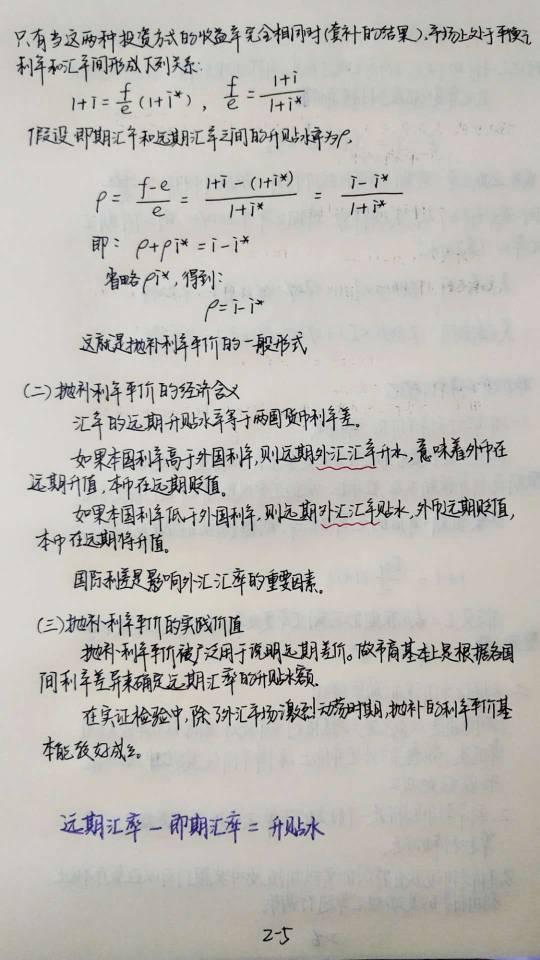 只有当这两种投资方式的收益率完全相同时(套补的结果),市场上处于平衡,
利率和汇率间形成下列关系:
1+i = f/e (1+i*), f/e = (1+i)/(1+i*)
假设即期汇率和远期汇率之间的升贴水率为ρ,
ρ = (f-e)/e = (1+i-(1+i*))/(1+i*) = (i-i*)/(1+i*)
即: ρ+ρi* = i-i*
省略ρi*,得到:
ρ=i-i*
这就是抛补利率平价的一般形式
(二)抛补利率平价的经济含义
汇率的远期升贴水率等于两国货币利率差。
如果本国利率高于外国利率,则远期外汇汇率升水,意味着外币在
远期升值,本币在远期贬值。
如果本国利率低于外国利率,则远期外汇汇率贴水,外币远期贬值,
本币在远期将升值。
国际利差是影响外汇汇率的重要因素。
(三)抛补利率平价的实践价值
抛补利率平价被广泛用于说明远期差价。做市商基本上是根据各国
间利率差异来确定远期汇率的升贴水额。
在实证检验中,除了外汇市场激烈动荡时期,抛补的利率平价基
本能较好成立。
远期汇率-即期汇率=升贴水
2-5